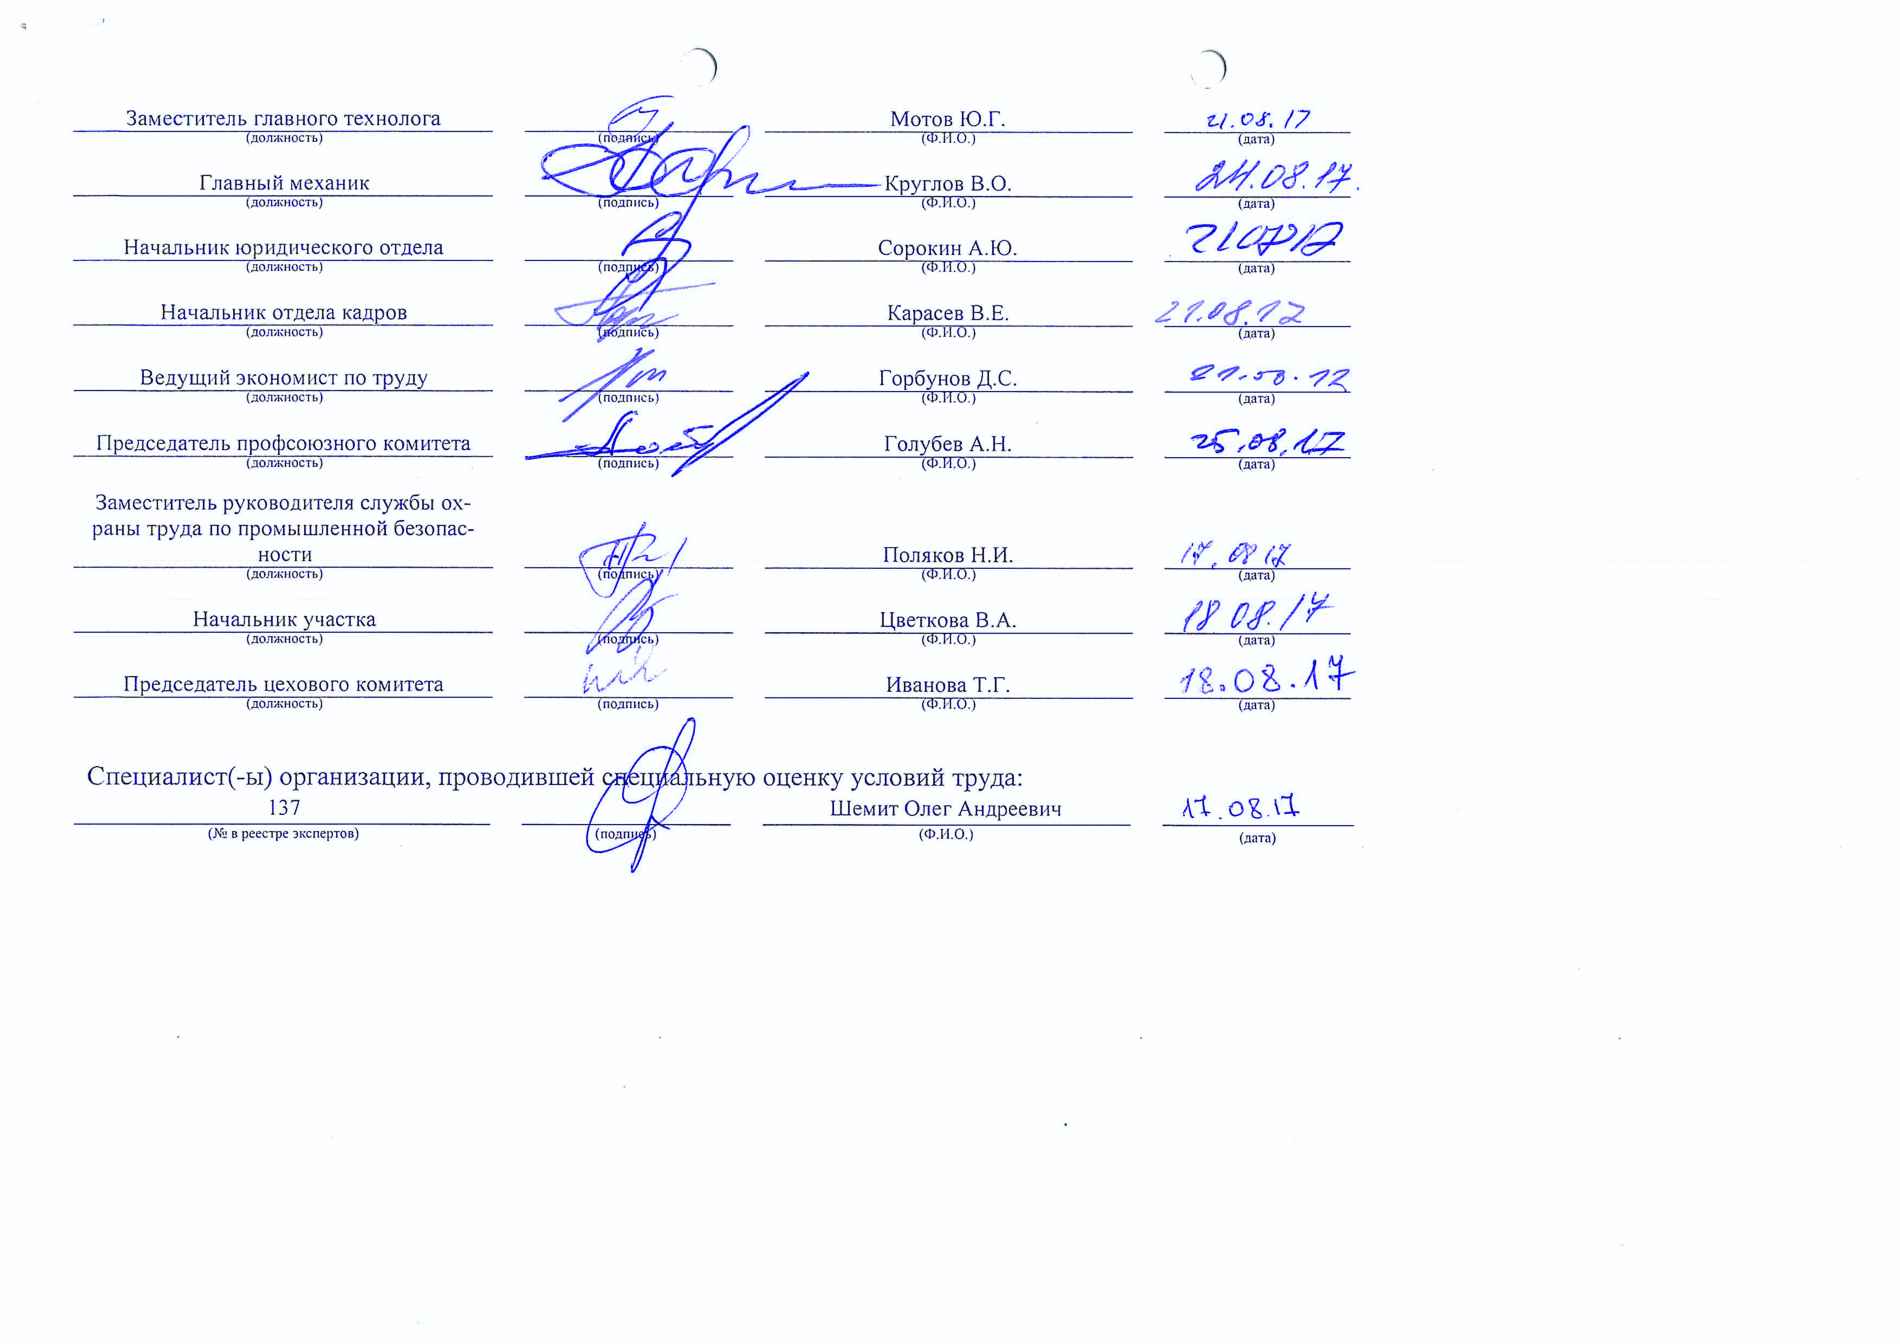 Заместитель главного технолога Мотов Ю.Г. 21.08.17
(должность) (подпись) (Ф.И.О.) (дата)
Главный механик Круглов В.О. 24.08.17.
(должность) (подпись) (Ф.И.О.) (дата)
Начальник юридического отдела Сорокин А.Ю.
(должность) (подпись) (Ф.И.О.) (дата)
Начальник отдела кадров Карасев В.Е. 21.08.17
(должность) (подпись) (Ф.И.О.) (дата)
Ведущий экономист по труду Горбунов Д.С.
(должность) (подпись) (Ф.И.О.) (дата)
Председатель профсоюзного комитета Голубев А.Н. 25.08.17
(должность) (подпись) (Ф.И.О.) (дата)
Заместитель руководителя службы ох-
раны труда по промышленной безопас-
ности Поляков Н.И. 17.08 17
(должность) (подпись) (Ф.И.О.) (дата)
Начальник участка Цветкова В.А. 18 08.17
(должность) (подпись) (Ф.И.О.) (дата)
Председатель цехового комитета Иванова Т.Г. 18.08.17
(должность) (подпись) (Ф.И.О.) (дата)
Специалист(-ы) организации, проводившей специальную оценку условий труда:
137 Шемит Олег Андреевич 17.08.17
(№ в реестре экспертов) (подпись) (Ф.И.О.) (дата)